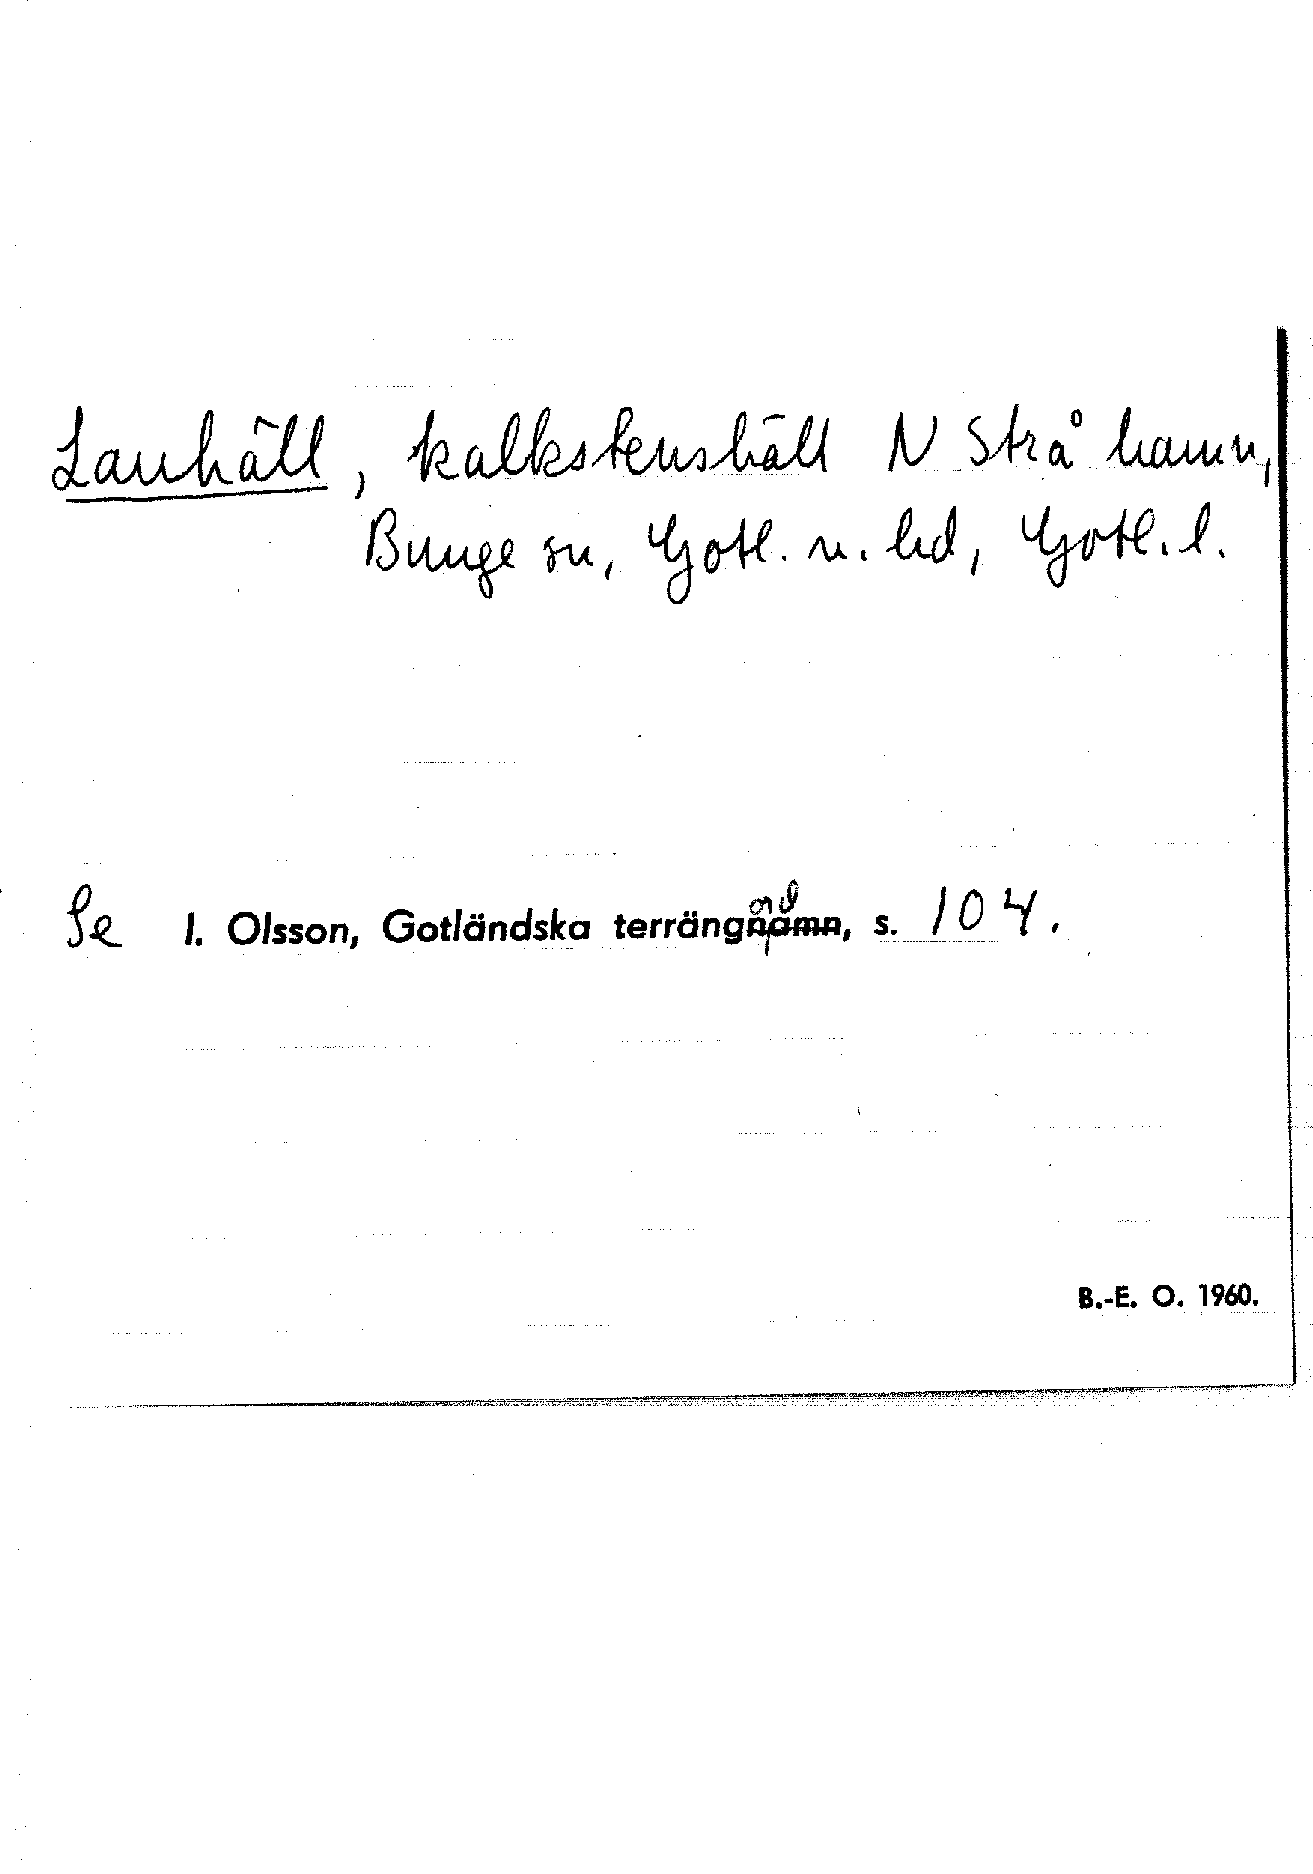 Lauhäll, kalkstenshäll N Strå hamn,
Bunge sn, Gotl. n. hd, Gotl. l.
Se I. Olsson, Gotländska terrängord, s. 104.
B.-E. O. 1960.